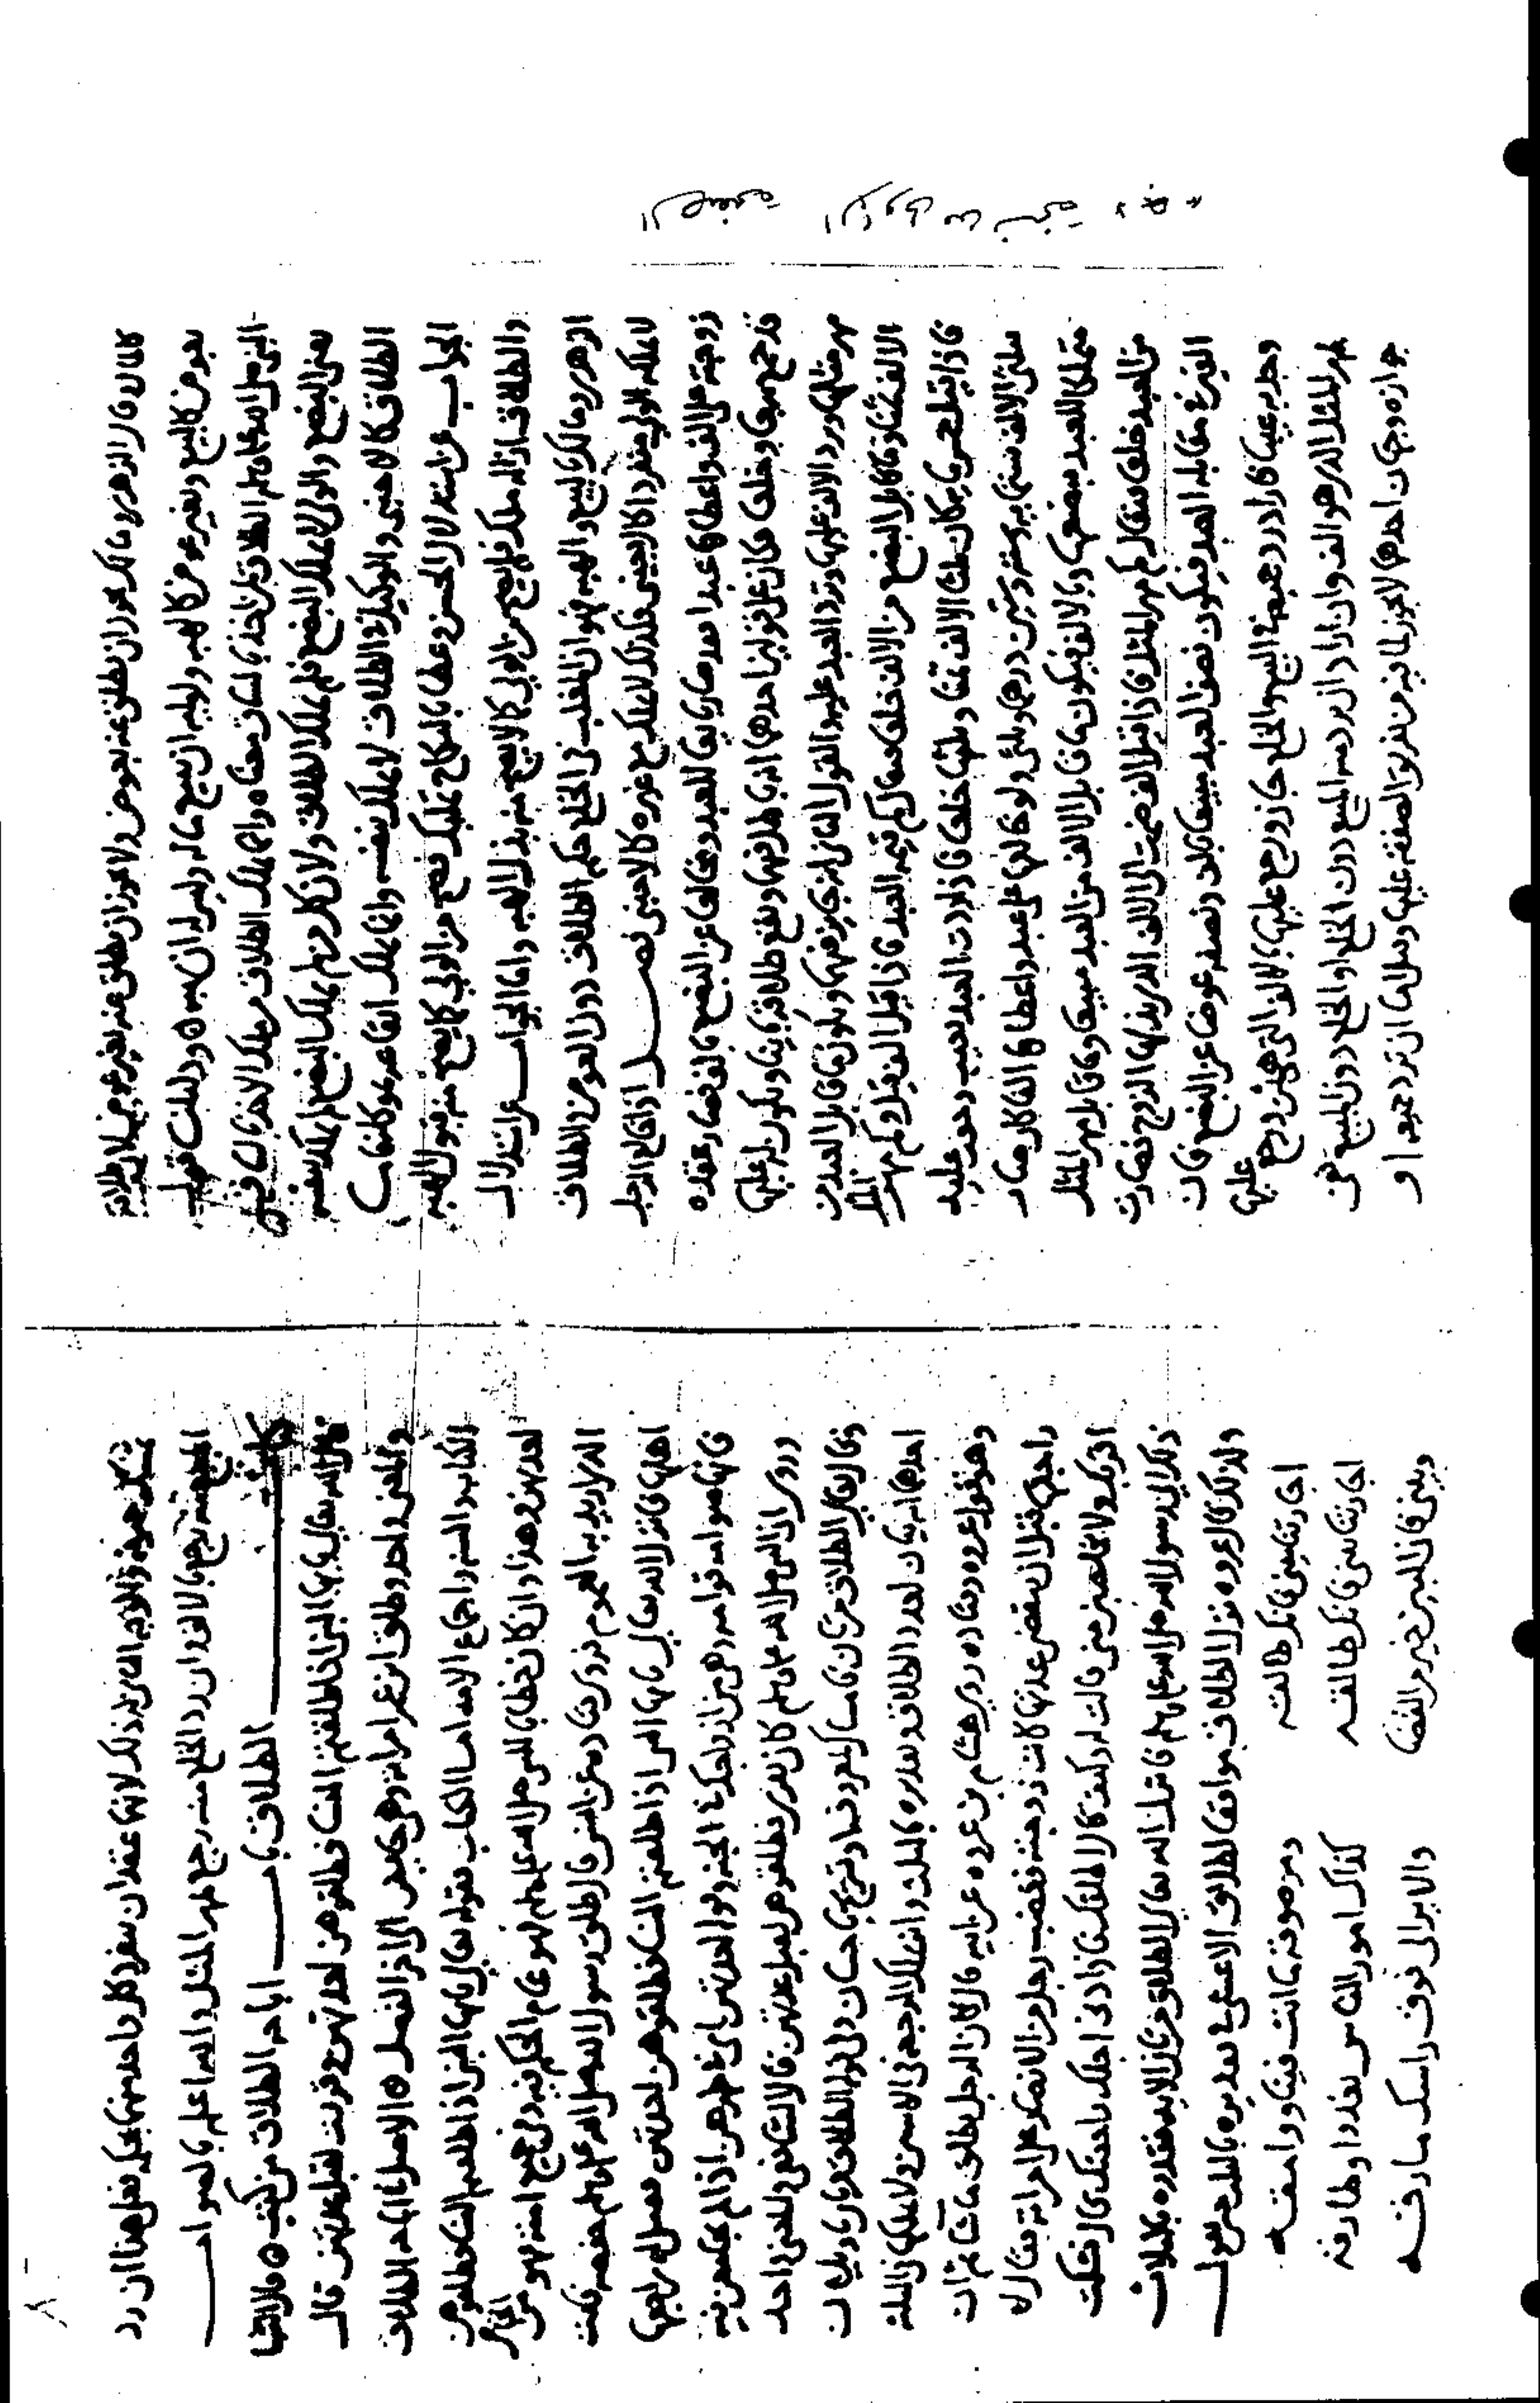 كالمال وقال الزهري ومالك يجوز ان يطلق عنه بعوض ولا يجوز ان يطلق عنه بغير عوض لان طلاقه
بعوض كالبيع وبغير عوض كالهبه ولوليه ان يبيع ماله وليس له ان يهبه ودليلنا قول
النبي صلى الله عليه وسلم الطلاق لمن اخذ بالساق معناه وانما يملك الطلاق من يملك الاخذ بالساق
يعني البضع والولي لا يملك البضع فلم يملك الطلاق ولان كل من لم يملك البضع لم يملك بنفسه
الطلاق كالاجنبي والوكيل في الطلاق لا يملك بنفسه وانما يملك ايقاعه عن موكله فاما
الجواب عن استدلال الحسن وعطا بالنكاح تمليك فصح من الولي كما يصح منه قبول الهبه
والطلاق ازاله ملك فلم يصح من الولي كما لا يصح منه بذل الهبه واما الجواب عن استدلال
الزهري ومالك بالبيع والهبه فهو ان المغلب في الخلع حكم الطلاق دون العوض والطلاق
لا يملكه الولي منفردا كالاجنبي فكذلك لا يملكه مع غيره كالاجنبي فصل اذا خالع الرجل
زوجته على الف واعطاها عبدا فقد صار بايعا للعبد ومخالعا عن البضع بالف فصار عقده
قد جمع بيعا وخلعا فكان على قولين احدهما انه باطل فيهما ويقع طلاقه باينا ويكون له عليها
مهر مثلها ويرد الالف عليها وترد العبد عليه والقول الثاني انه جايز فيهما ويكون ما قابل العبد من
الالف ثمنا وما قابل البضع من الالف خلعا فيقال كم قيمه العبد فاذا قيل الف قيل وكم مهر المثل
فاذا قيل خمس مايه كان ثلثا الالف ثمنا وثلثها خلعا فاذا ردت العبد بعيب رجعت عليه
بثلثي الالف ستمايه وسته وستين درهما وثلثي ولو خالعها على عبد واعطاها الفا كان صار
متملكا للعبد ببضعها وبالالف فيكون ما قابل الالف من العبد مبيعا وما قابل مهر المثل
من العبد خلعا فيقال كم مهر المثل فاذا قيل الف ضمت الى الالف الذي بذلها الزوج فصارت
الفين في مقابله العبد فيكون نصف العبد مبيعا بالف ونصفه عوضا عن البضع فان
وجد به عيبا فاراد رده بعيبه في البيع والخلع جاز ورجع عليها بالالف التي هي ثمن ورجع عليها
بمهر المثل الذي هو الف وان اراد ان يرد منه المبيع دون الخلع او الخلع دون المبيع ففي
جوازه وجهان احدهما لا يجوز لما فيه من تفريق الصفقه عليها ويقال اما ان ترد جميعه او
تمسك جميعه والوجه الثاني له ذلك لانهما عقدان ينفرد كل واحد منهما بحكمه فعلى هذا ان رد
المبيع منه رجع بالالف وان رد الخلع منه رجع بمهر المثل والله اعلم بالصواب
كتاب الطلاق باب اباحه الطلاق من كتب ه قال الشافعي
قال الله تعالى يايها النبي اذا طلقتم النسا فطلقوهن لعدتهن وقريت لقبل عدتهن قال
والمعنى واحد وطلق ابن عمر امراته وهي حايض الى اخر الفصل ه الاصل في اباحه الطلاق
الكتاب والسنه واجماع الامه اما الكتاب فقوله تعالى يايها النبي اذا طلقتم النسا فطلقوهن
لعدتهن وهذا وان كان خطابا للنبي صلى الله عليه وسلم فهو عام الحكم فيه وفي جميع امته فهو من الخاص
الذي اريد به العموم فروى قتاده عن انس قال طلق رسول الله صلى الله عليه وسلم حفصه فاتت
اهلها فانزل الله تعالى يايها النبي اذا طلقتم النسا فطلقوهن لعدتهن فقيل له راجعها
فانها صوامه قوامه وهي من ازواجك في الجنه وقوله لعدتهن اي في طهرهن اذا لم يجامعن فيه
وروي ان النبي صلى الله عليه وسلم كان يقرا فطلقوهن لقبل عدتهن قال الشافعي والمعنى واحد
وقال تعالى الطلاق مرتان فامساك بمعروف او تسريح باحسان وفي قوله الطلاق مرتان تاويلان
احدهما انه بيان لعدد الطلاق وتقديره بالثلاث وانه يملك الرجعه في الاثنين ولا يملكها في الثلثه
وهو قول عروه وقتاده روى هشام بن عروه عن ابيه قال كان الرجل يطلق ما شا ثم ان
راجعها قبل ان تنقضي عدتها كانت زوجته فغضب رجل من الانصار على امراته فقال لها
لا اقربك ولا تخلصين مني قالت له وكيف قال اطلقك فاذا دنا اجلك راجعتك قال فشكت
ذلك الى رسول الله صلى الله عليه وسلم فانزل الله تعالى الطلاق مرتان الايه فقدره بالثلاث
ولذلك قال عروه نزل الطلاق موافقا لطلاق الاعشى في تقديره بالثلاث حين يقول
اجارتنا بيني فانك طالقه وموموقة ما انت فينا ووامقه
اجارتنا بيني فانك طالقه كذاك امور الناس تغدوا وطارقه
وبيني فان البين خير من العصا والا يزال فوق راسك بارقه